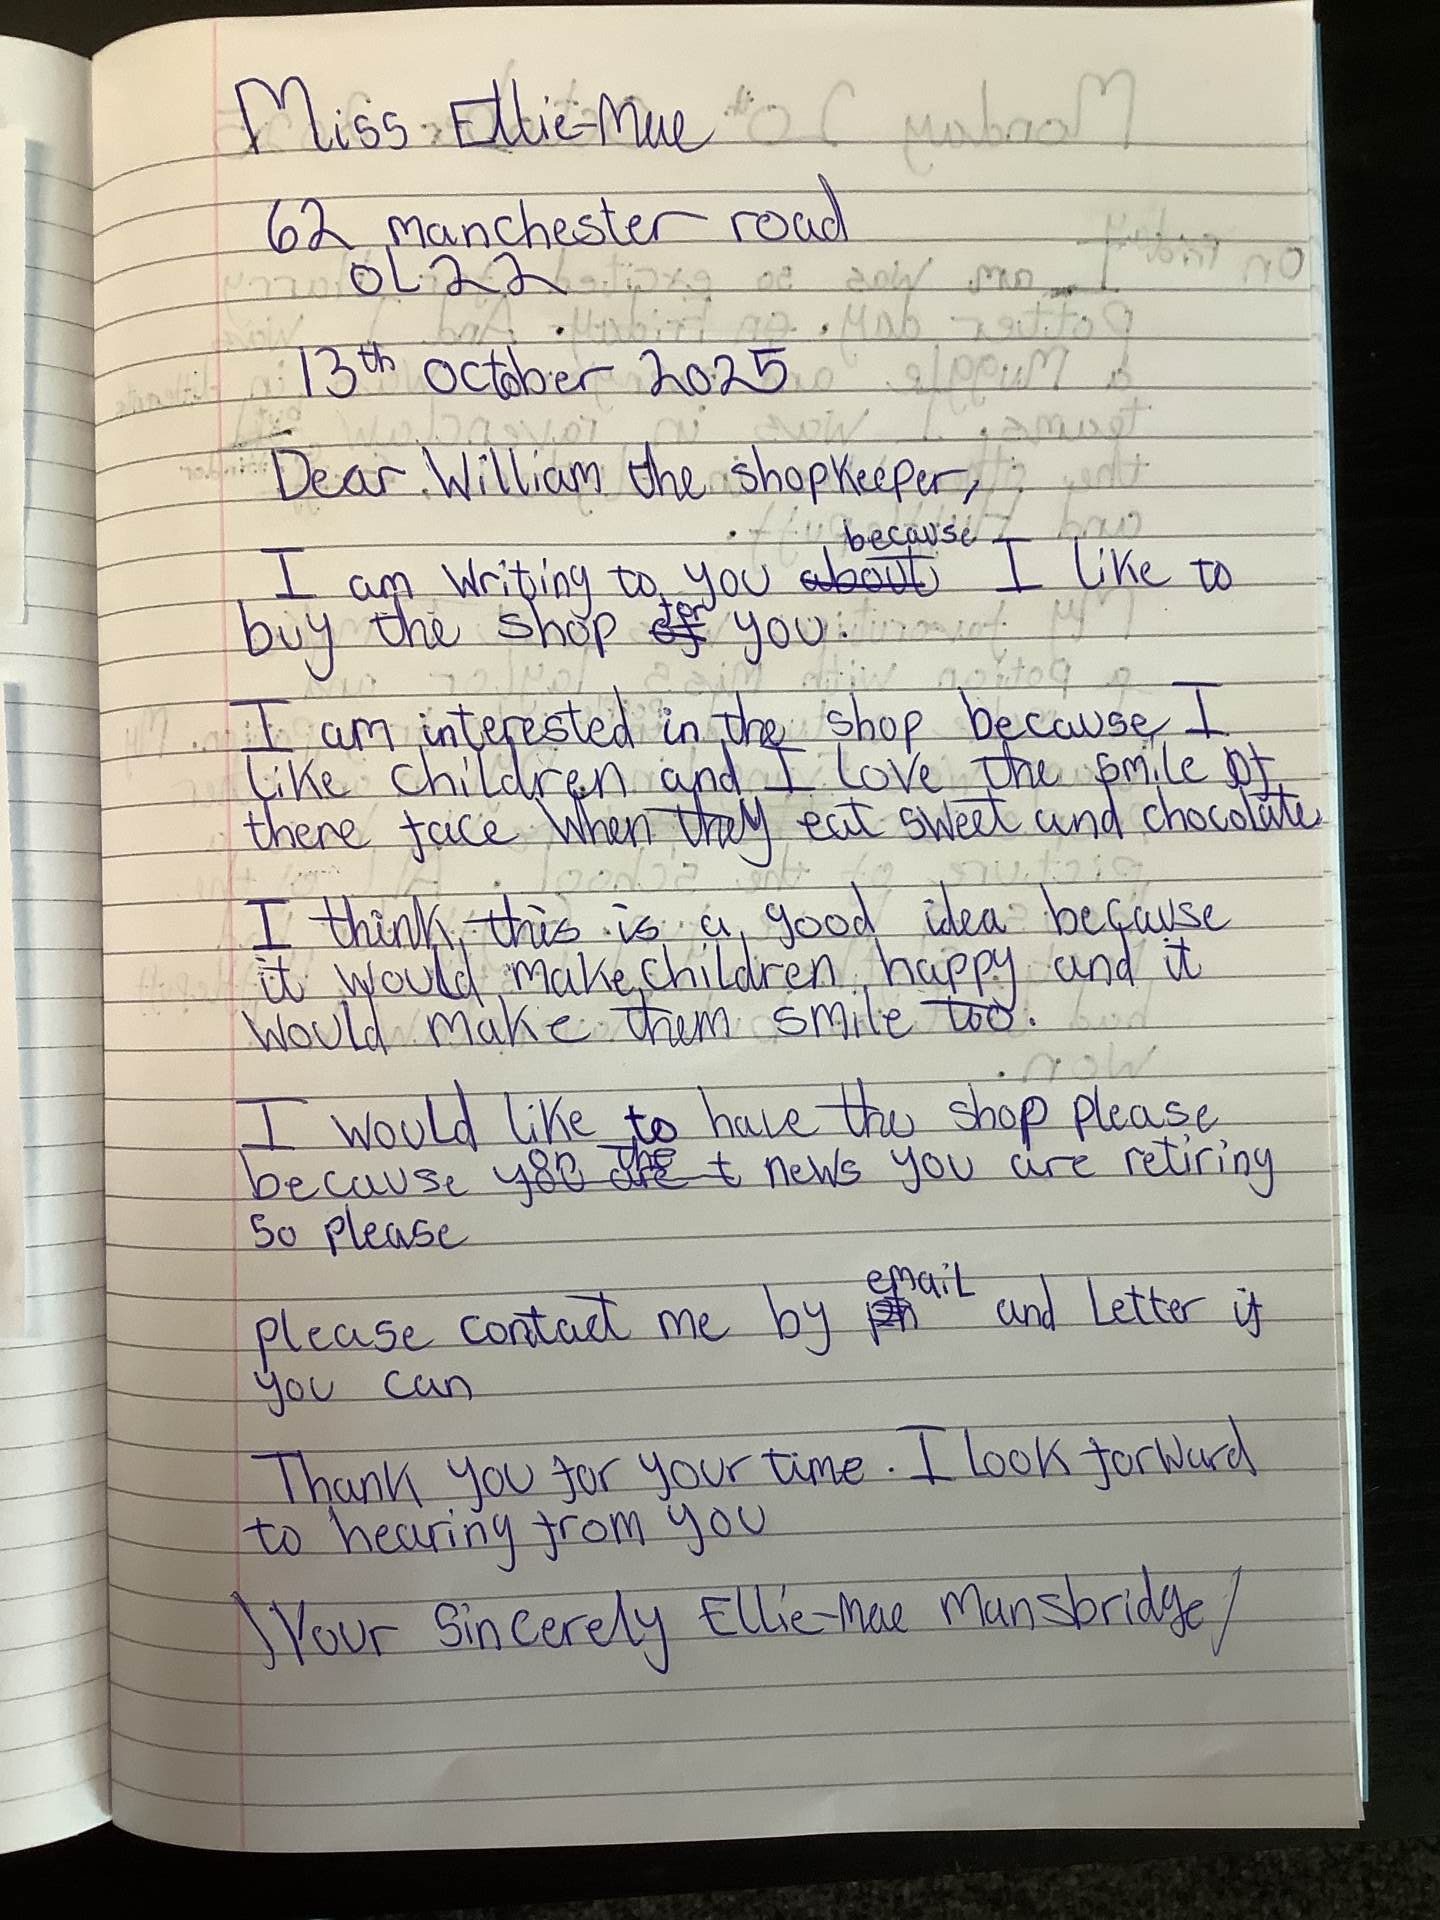 Miss Ellie-Mae
62 manchester road
OL22
13th october 2025
Dear William the shopkeeper,
because
I am writing to you about I like to
buy the shop of for you.
I am interested in the shop because I
like children and I love the smile of
there face when they eat sweet and chocolate
I think this is a good idea because
it would make children happy and it
would make them smile too.
I would like to have the shop please
because on the news you are retiring
so please
email
please contact me by and Letter if
you can
Thank you for your time. I look forward
to hearing from you
Your Sincerely Ellie-Mae Mansbridge